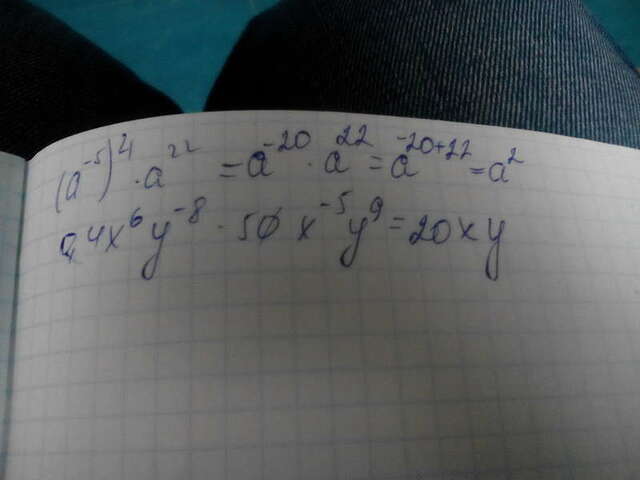 (a⁻⁵)⁴ · a²² = a⁻²⁰ · a²² = a⁻²⁰⁺²² = a²
0,4x⁶y⁻⁸ · 50x⁻⁵y⁹ = 20xy